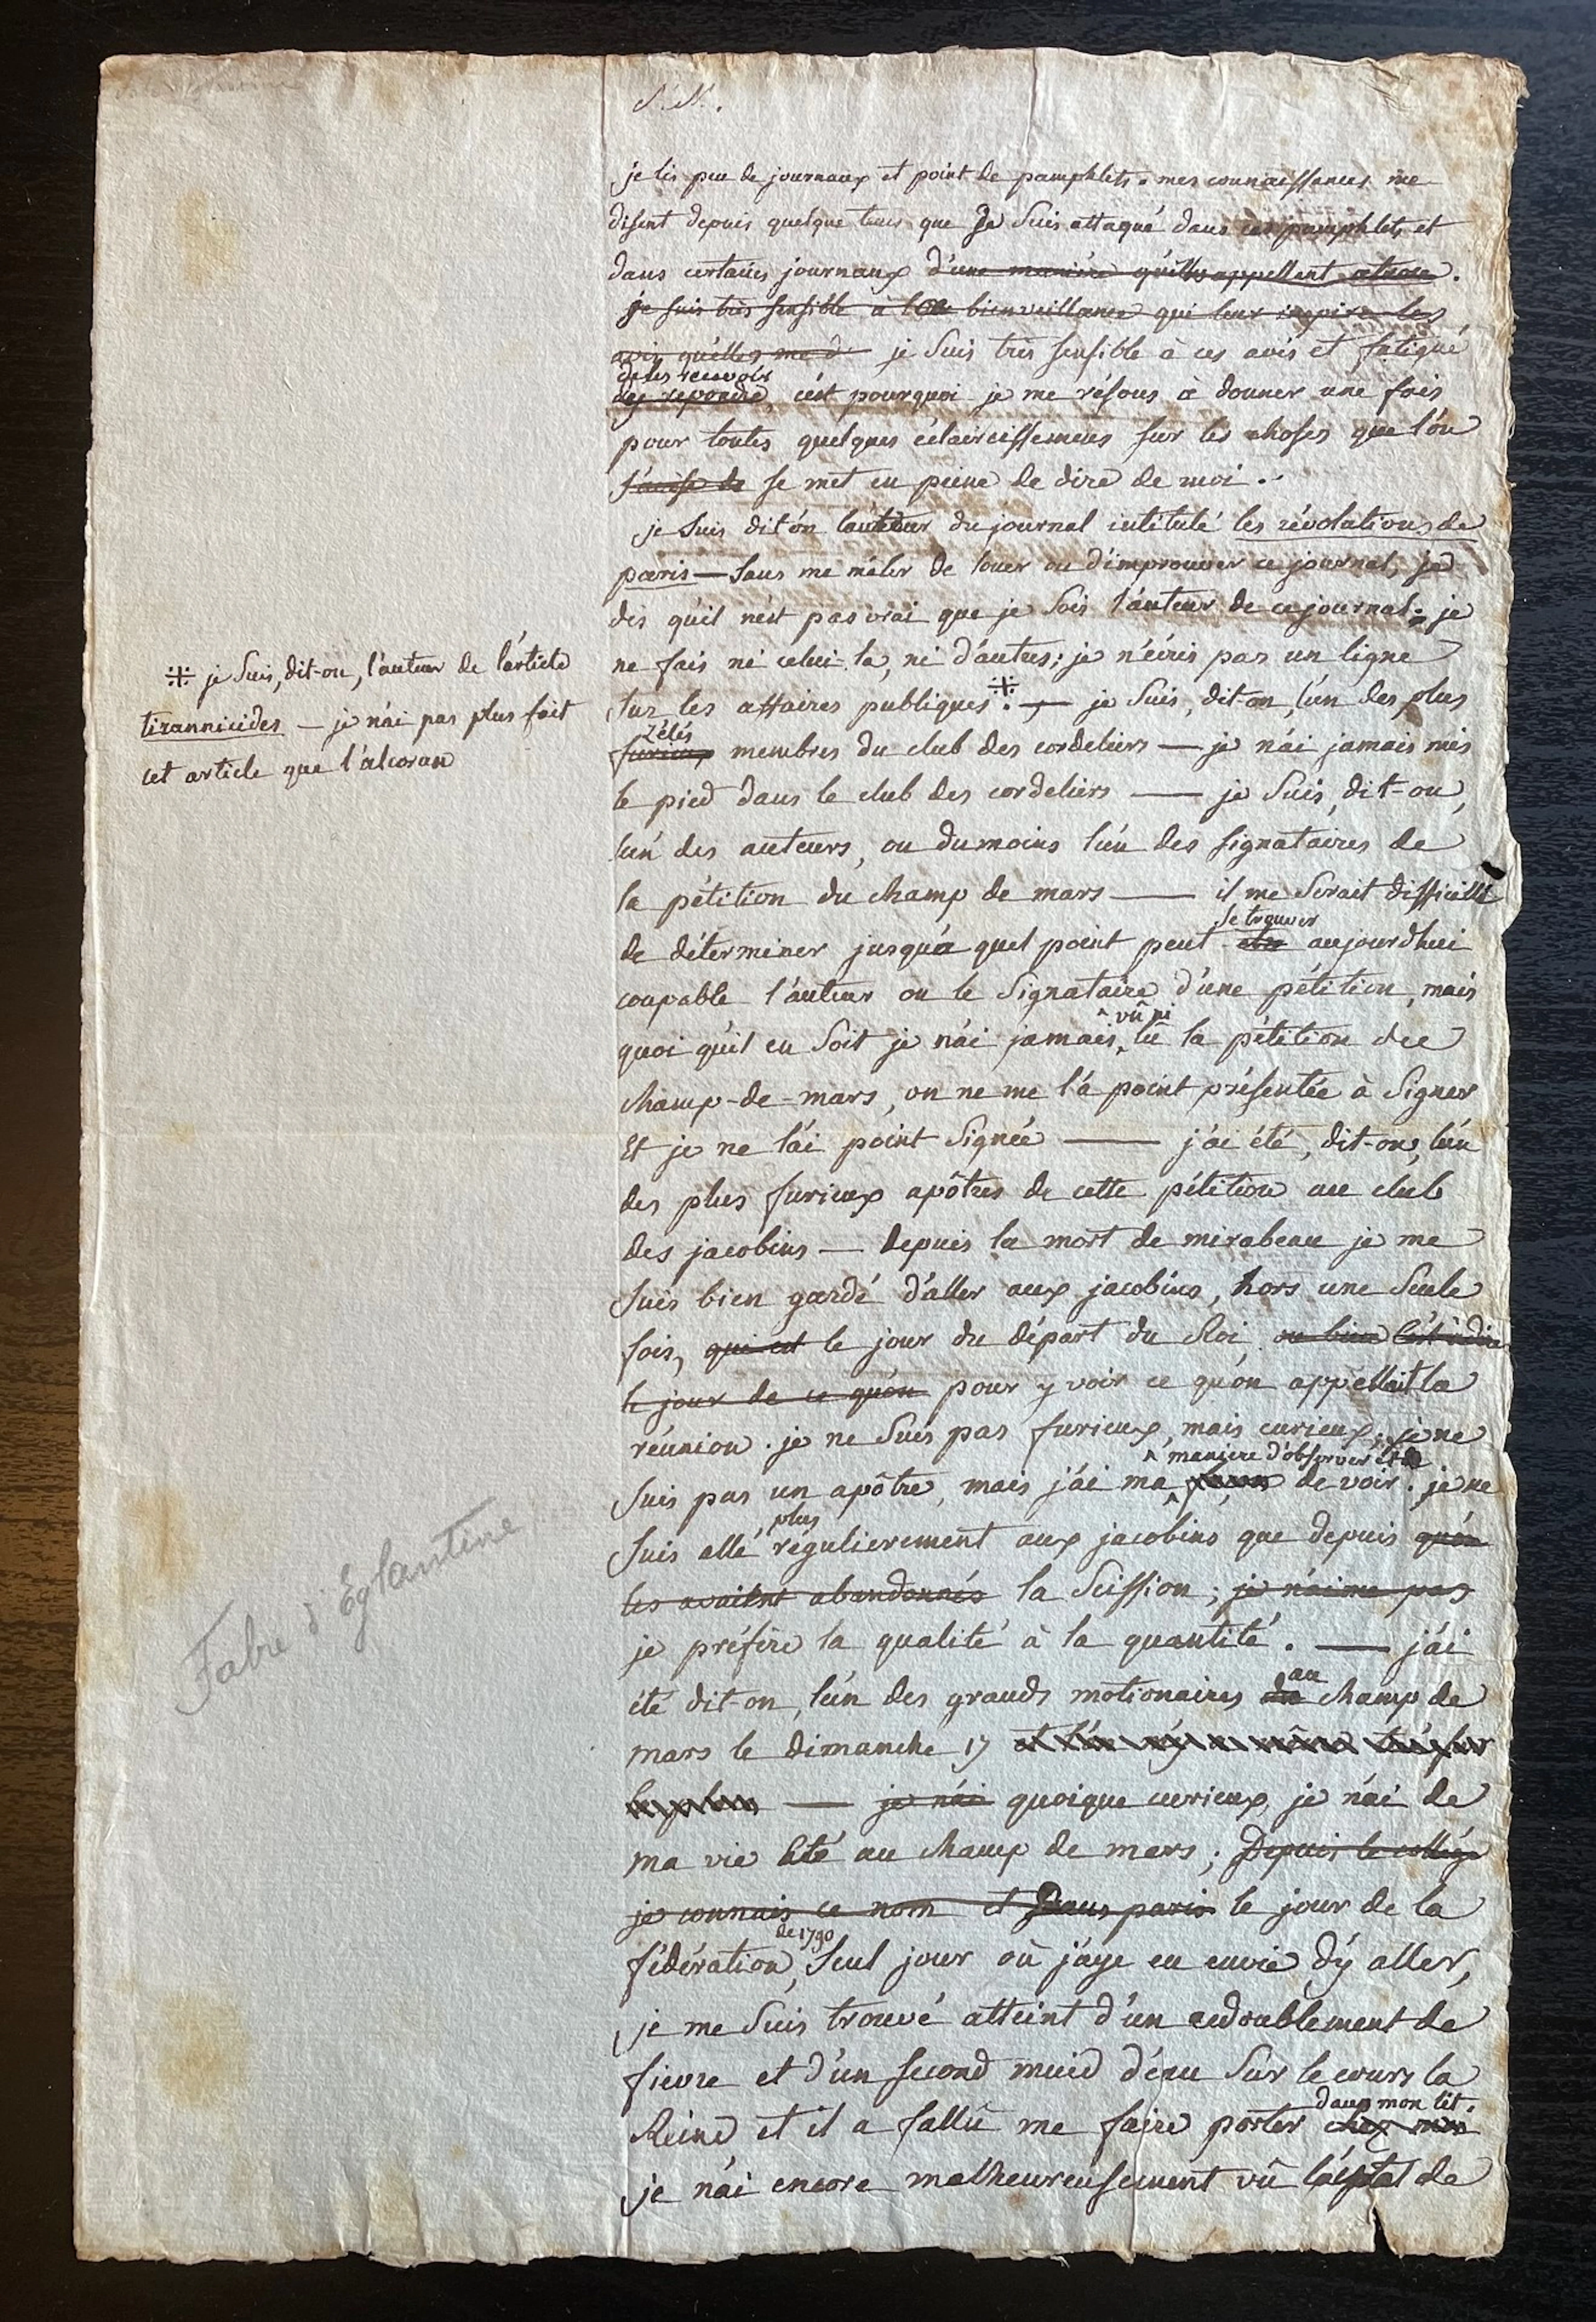 je lis peu de journaux et point de pamphlets. mes connaissances me
disent depuis quelque tems que je suis attaqué dans ces pamphlets et
dans certains journaux d'une manière qu'elles appellent atroce.
je suis très sensible à la bienveillance qui leur inspire les
avis qu'elles me d je suis très sensible à ces avis et fatigué
de les recevoir
d'y repondre, c'est pourquoi je me résous à donner une fois
pour toutes quelques éclaircissemens sur les choses que l'on
se met en peine de dire de moi.
je suis dit-on l'auteur du journal intitulé les révolutions de
paris — sans me mêler de louer ou d'improuver ce journal, je
dis qu'il n'est pas vrai que je sois l'auteur de ce journal; je
ne fais ni celui là, ni d'autres; je n'écris pas un ligne
sur les affaires publiques. ※ — je suis, dit-on, l'un des plus
zélés
furieux membres du club des cordeliers — je n'ai jamais mis
le pied dans le club des cordeliers — je suis, dit-on,
l'un des auteurs, ou du moins l'un des signataires de
la pétition du champ de mars — il me serait difficile
se trouver
de déterminer jusqu'à quel point peut être aujourdhui
coupable l'auteur ou le signataire d'une pétition, mais
vû ni
quoi qu'il en soit je n'ai jamais lû la pétition du
champ-de-mars, on ne me l'a point présentée à signer
et je ne l'ai point signée — j'ai été, dit-on, l'un
des plus furieux apôtres de cette pétition au club
des jacobins — depuis la mort de mirabeau je me
suis bien gardé d'aller aux jacobins, hors une seule
fois, qui est le jour du départ du Roi, ou bien c'est à dire
le jour de ce qu'on pour y voir ce qu'on appellait la
réunion. je ne suis pas furieux, mais curieux; je ne
manière d'observer et de
suis pas un apôtre, mais j'ai ma façon de voir. je ne
plus
suis allé régulierement aux jacobins que depuis qu'on
les avaient abandonnés la scission; je n'aime pas
je préfère la qualité à la quantité. — j'ai
au
été dit-on, l'un des grands motionaires du champ de
mars le dimanche 17
— je n'ai quoique curieux, je n'ai de
ma vie été au champ de mars; Depuis le collége
je connais ce nom et dans paris le jour de la
de 1790
fédération, seul jour où j'aye eu envie d'y aller,
je me suis trouvé atteint d'un redoublement de
fievre et d'un second muid d'eau sur le cours la
dans mon lit.
Reine et il a fallû me faire porter chez moi
je n'ai encore malheureusement vû de
※ je suis, dit-on, l'auteur de l'article
tirannicides — je n'ai pas plus fait
cet article que l'alcoran
Fabre d'Eglantine